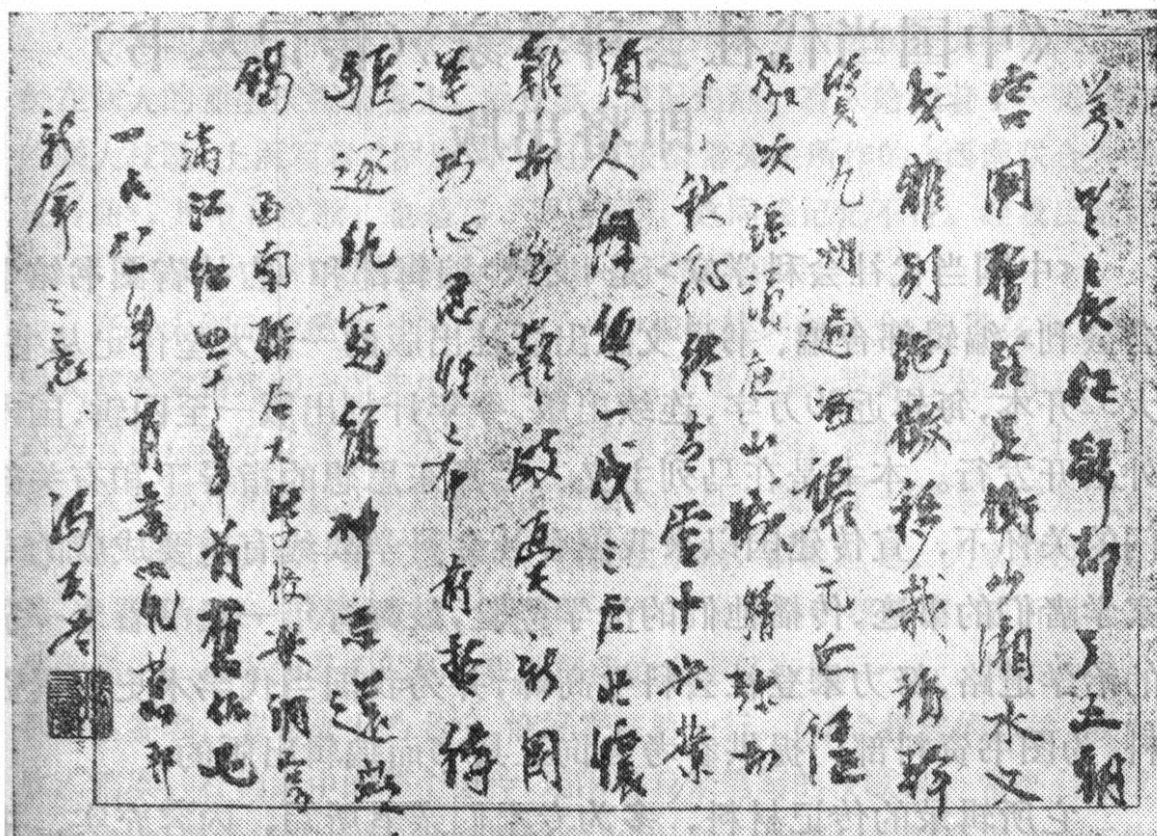 萬里長征辭却了五朝
宮闕暫駐足衡山湘水又
成離別絕徼移栽楨幹
質九州遍洒黎元血儘
笳吹絃誦在山城情弥切
千秋恥終當雪中兴業
須人傑便一成三户壯懷
難折多難殷憂新國
運動心忍性希前哲待
驅逐仇寇復神京還燕
碣
西南聯合大學校歌調寄
滿江紅四十年前舊作也
一九八一年月書舊邦
新命之意 馮友蘭